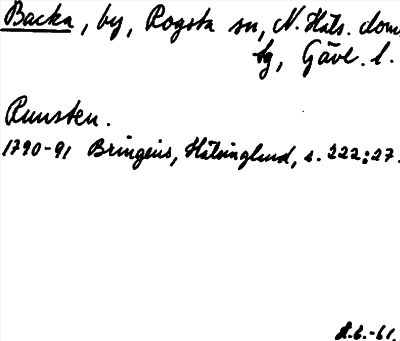 Backa, by, Rogsta sn, N. Häls. doms.
tg, Gävl. l.
Runsten.
1790-91 Bringéus, Hälsinglund, s. 222:27.
H.b.-61.